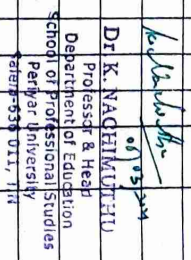 Dr K. NACHIMUTHU
Professor & Head
Department of Education
School of Professional Studies
Periyar University
Salem-636 011, TN